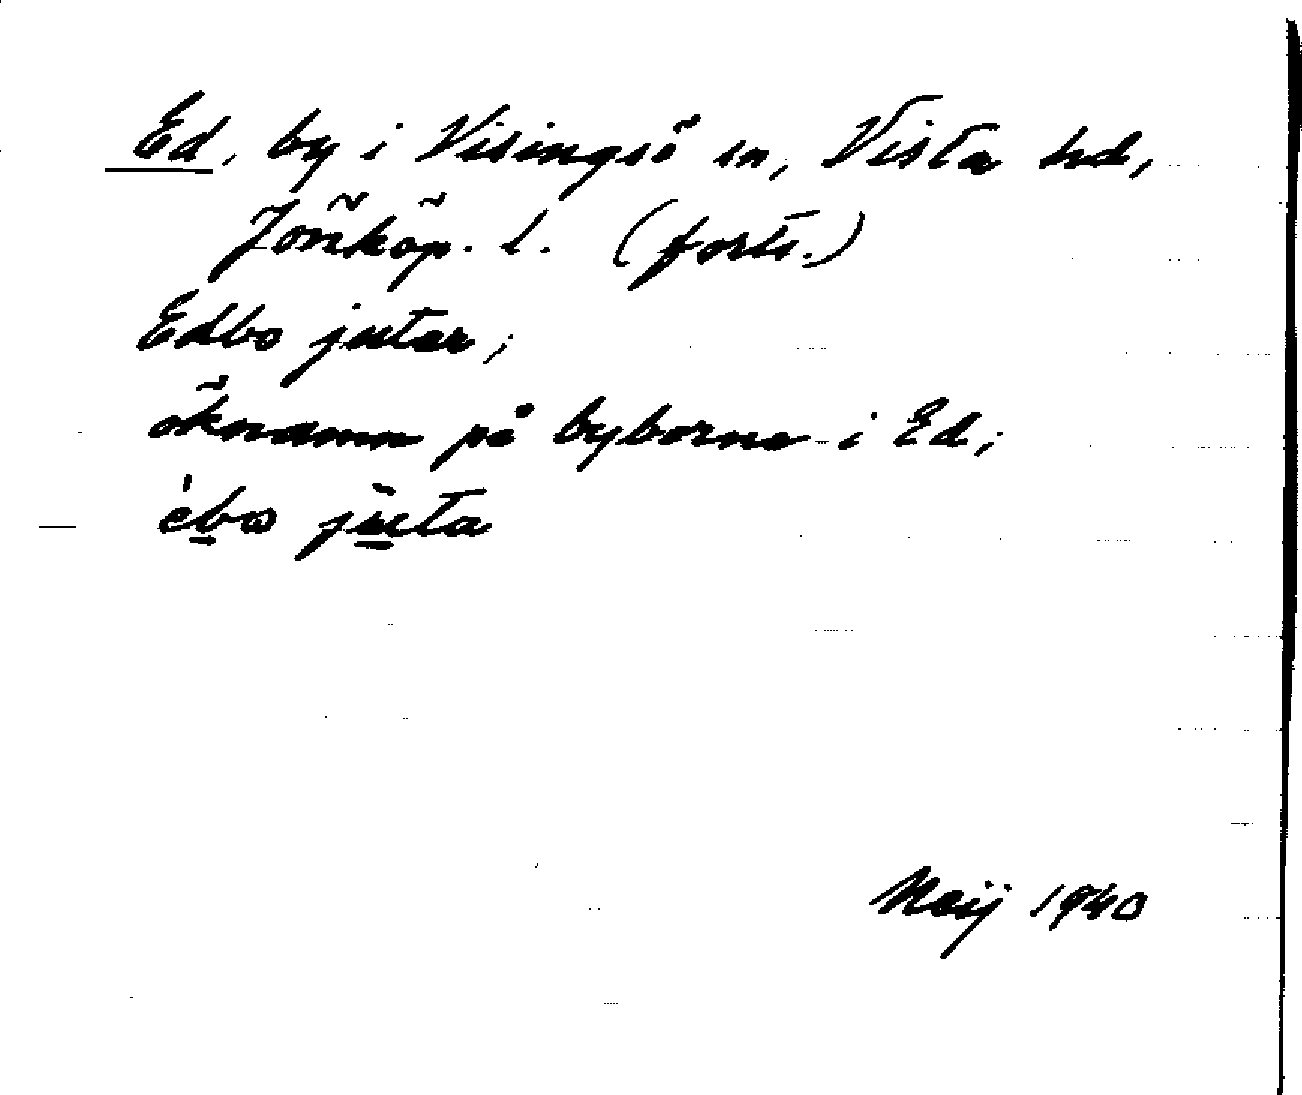 Ed, by i Visingsö sn, Vista hd,
Jönköp. l. (forts.)
Edbo jutar;
öknamn på byborna i Ed;
èbo juta
1940